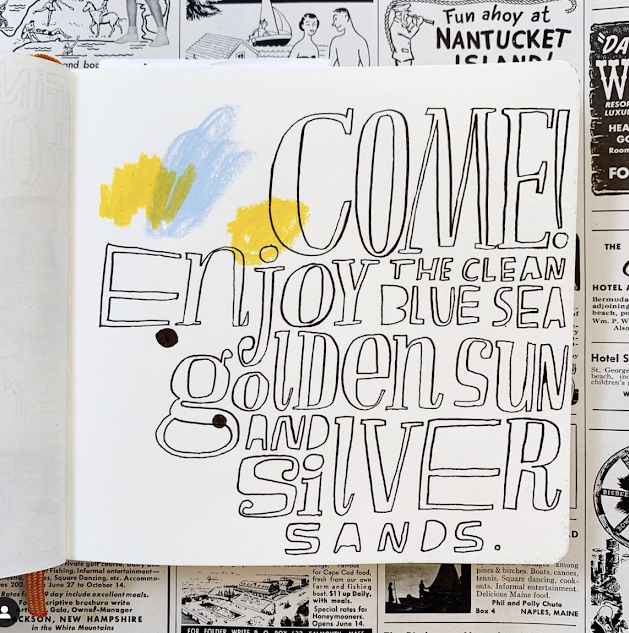 Fun ahoy at
NANTUCKET
ISLAND!
COME!
Enjoy THE CLEAN
BLUE SEA
golden SUN
AND SilVER
SANDS.
THE
HOTEL
Hotel S
FO
golf course, Daily
Fishing. Informal entertainment—
Square Dancing, etc. Accommo-
June 27 to October 14.
day include excellent meals.
descriptive brochure write
Gale, Owner-Manager
JACKSON, NEW HAMPSHIRE
in the White Mountains
for Cape Cod food,
fresh from our own
farm and fishing
boat. $11 up Daily,
with meals.
Special rates for
Honeymooners.
Opens June 14.
pines & birches. Boats, canoes,
tennis, Square dancing, cook-
outs. Informal entertainment.
Delicious Maine food.
Phil and Polly Chute
Box 4 NAPLES, MAINE